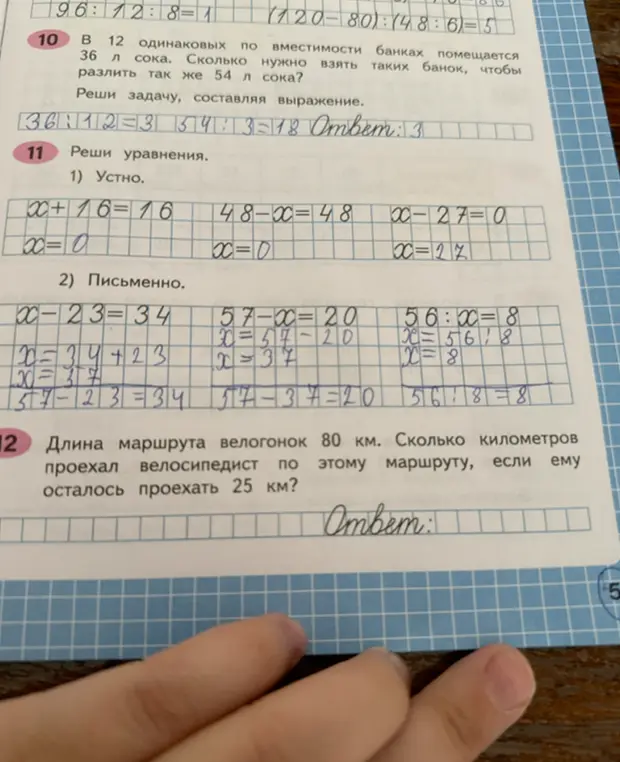 96:12:8=1 (120-80):(48:6)=5
10 В 12 одинаковых по вместимости банках помещается
36 л сока. Сколько нужно взять таких банок, чтобы
разлить так же 54 л сока?
Реши задачу, составляя выражение.
36:12=3 54:3=18 Ответ: 3
11 Реши уравнения.
1) Устно.
x+16=16 48-x=48 x-27=0
x=0 x=0 x=27
2) Письменно.
x-23=34 57-x=20 56:x=8
x=57-20 x=56:8
x=34+23 x=37 x=8
x=57
57-23=34 57-37=20 56:8=8
12 Длина маршрута велогонок 80 км. Сколько километров
проехал велосипедист по этому маршруту, если ему
осталось проехать 25 км?
Ответ:
5